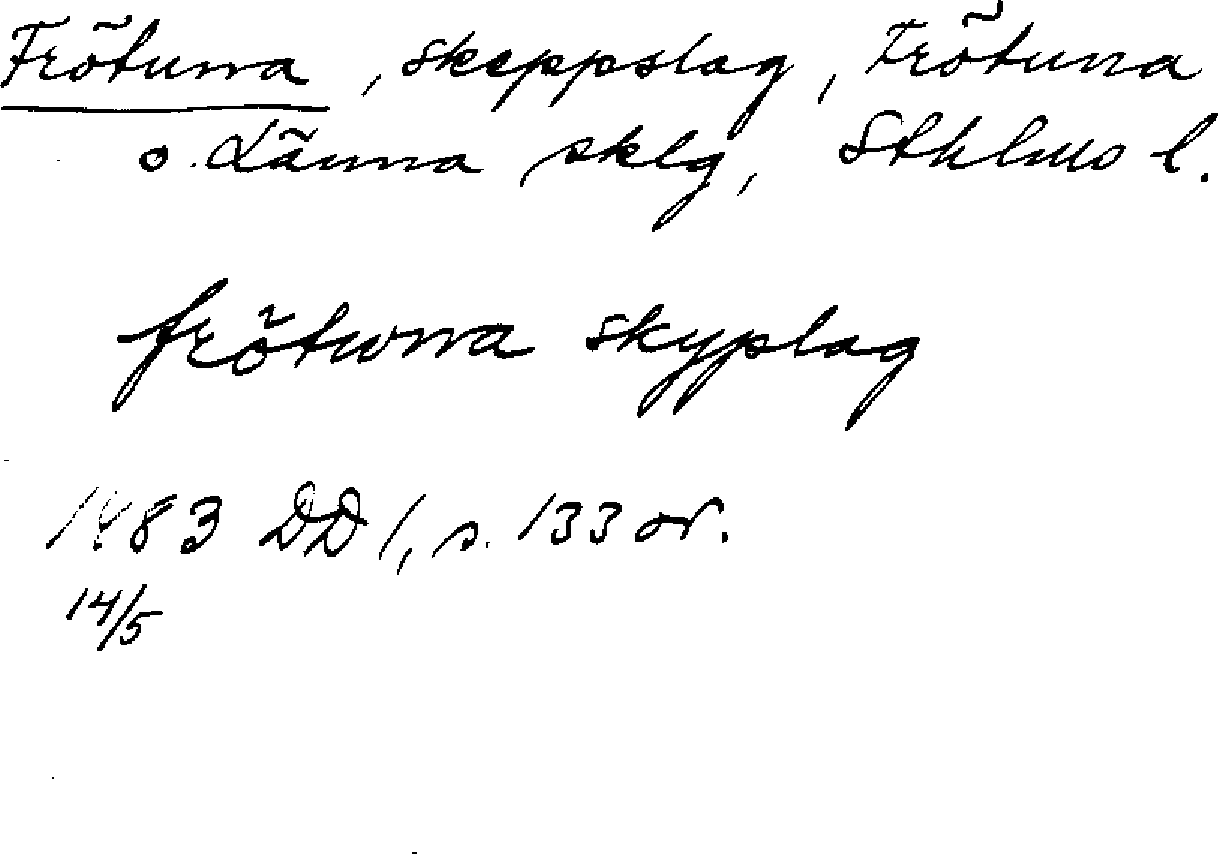 Frötuna, skeppslag, Frötuna
o. Länna sklg, Sthlms l.
frötwna skyplag
1483 DD 1, s. 133 or.
14/5